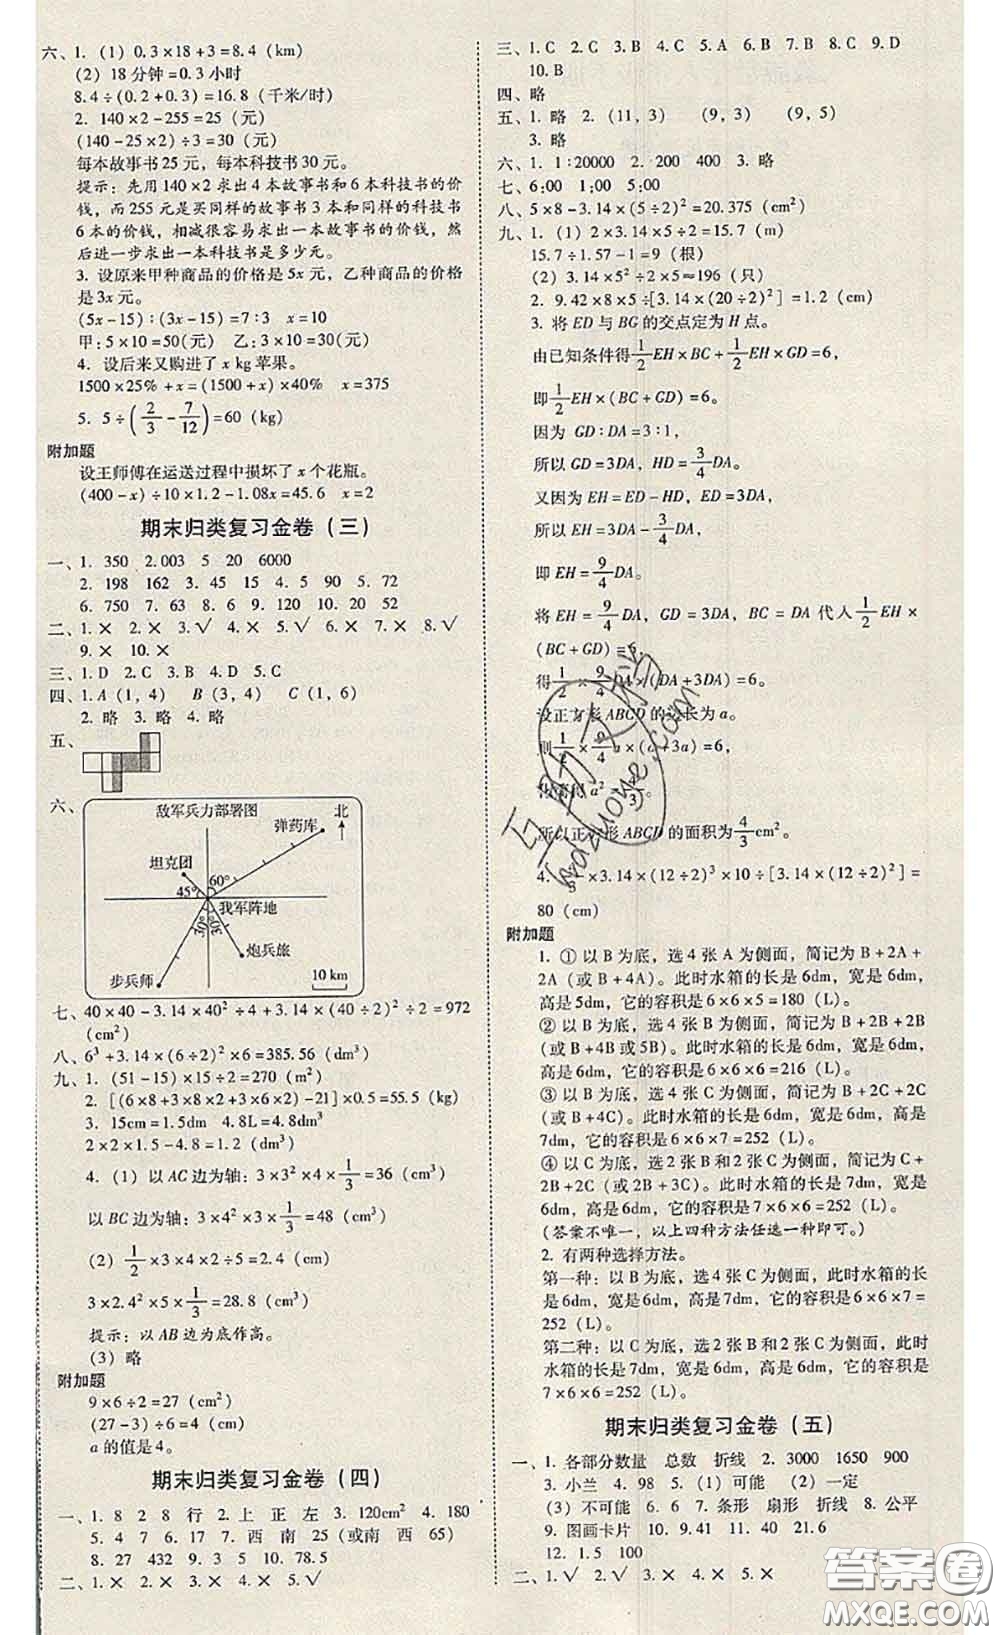 六、1. (1) 0.3×18+3=8.4 (km)
(2) 18分钟=0.3小时
8.4÷(0.2+0.3)=16.8 (千米/时)
2. 140×2-255=25 (元)
(140-25×2)÷3=30 (元)
每本故事书25元，每本科技书30元。
提示：先用140×2求出4本故事书和6本科技书的价
钱，而255元是买同样的故事书3本和同样的科技书
6本的价钱，相减很容易求出一本故事书的价钱，然
后进一步求出一本科技书是多少元。
3. 设原来甲种商品的价格是5x元，乙种商品的价格
是3x元。
(5x-15):(3x-15)=7:3 x=10
甲：5×10=50(元) 乙：3×10=30(元)
4. 设后来又购进了x kg苹果。
1500×25% +x=(1500+x)×40% x=375
5. 5÷(2/3-7/12)=60 (kg)
附加题
设王师傅在运送过程中损坏了x个花瓶。
(400-x)÷10×1.2-1.08x=45.6 x=2
期末归类复习金卷（三）
一、1. 350 2.003 5 20 6000
2. 198 162 3. 45 15 4. 5 90 5. 72
6. 750 7. 63 8. 6 9. 120 10. 20 52
二、1.× 2.× 3.√ 4.× 5.√ 6.× 7.× 8.√
9.× 10.×
三、1.D 2.C 3.B 4.D 5.C
四、1.A (1, 4) B (3, 4) C (1, 6)
2. 略 3. 略 4. 略
五、
六、
敌军兵力部署图
北
弹药库
坦克团
60°
45°
我军阵地
30°
30°
炮兵旅
步兵师
10 km
七、40×40-3.14×40²÷4+3.14×(40÷2)²÷2=972
(cm²)
八、6³+3.14×(6÷2)²×6=385.56 (dm³)
九、1. (51-15)×15÷2=270 (m²)
2. [(6×8+3×8×2+3×6×2)-21]×0.5=55.5 (kg)
3. 15cm=1.5dm 4.8L=4.8dm³
2×2×1.5-4.8=1.2 (dm³)
4. (1) 以AC边为轴：3×3²×4×1/3=36 (cm³)
以BC边为轴：3×4²×3×1/3=48 (cm³)
(2) 1/2×3×4×2÷5=2.4 (cm)
3×2.4²×5×1/3=28.8 (cm³)
提示：以AB边为底作高。
(3) 略
附加题
9×6÷2=27 (cm²)
(27-3)÷6=4 (cm)
a的值是4。
期末归类复习金卷（四）
一、1. 8 2 8 行 2. 上 正 左 3. 120cm² 4. 180
5. 4 7 6. 17 7. 西 南 25 (或南 西 65)
8. 27 432 9. 3 5 10. 78.5
二、1.× 2.× 3.× 4.× 5.√
三、1.C 2.C 3.B 4.C 5.A 6.B 7.B 8.C 9.D
10.B
四、略
五、1. 略 2. (11, 3) (9, 3) (9, 5)
3. 略
六、1. 1:20000 2. 200 400 3. 略
七、6:00 1:00 5:00
八、5×8-3.14×(5÷2)²=20.375 (cm²)
九、1. (1) 2×3.14×5÷2=15.7 (m)
15.7÷1.57-1=9 (根)
(2) 3.14×5²÷2×5≈196 (只)
2. 9.42×8×5÷[3.14×(20÷2)²]=1.2 (cm)
3. 将ED与BG的交点定为H点。
由已知条件得1/2EH×BC+1/2EH×GD=6，
即1/2EH×(BC+GD)=6。
因为 GD:DA=3:1，
所以 GD=3DA，HD=3/4DA，
又因为 EH=ED-HD，ED=3DA，
所以 EH=3DA-3/4DA，
即 EH=9/4DA。
将 EH=9/4DA，GD=3DA，BC=DA 代入1/2EH×
(BC+GD)=6，
得1/2×9/4DA×(DA+3DA)=6。
设正方形ABCD的边长为a。
则1/2×9/4a×(a+3a)=6，
a²
所以正方形ABCD的面积为4/3cm²。
4. ×3.14×(12÷2)³×10÷[3.14×(12÷2)²]=
80 (cm)
附加题
1. ①以B为底，选4张A为侧面，简记为B+2A+
2A (或B+4A)。此时水箱的长是6dm，宽是6dm，
高是5dm，它的容积是6×6×5=180 (L)。
②以B为底，选4张B为侧面，简记为B+2B+2B
(或B+4B或5B)。此时水箱的长是6dm，宽是6dm，
高是6dm，它的容积是6×6×6=216 (L)。
③以B为底，选4张C为侧面，简记为B+2C+2C
(或B+4C)。此时水箱的长是6dm，宽是6dm，高是
7dm，它的容积是6×6×7=252 (L)。
④以C为底，选2张B和2张C为侧面，简记为C+
2B+2C (或2B+3C)。此时水箱的长是7dm，宽是
6dm，高是6dm，它的容积是7×6×6=252 (L)。
(答案不唯一，以上四种方法任选一种即可。)
2. 有两种选择方法。
第一种：以B为底，选4张C为侧面，此时水箱的
长是6dm，宽是6dm，高是7dm，它的容积是6×6×7=
252 (L)。
第二种：以C为底，选2张B和2张C为侧面，此时
水箱的长是7dm，宽是6dm，高是6dm，它的容积是
7×6×6=252 (L)。
期末归类复习金卷（五）
一、1. 各部分数量 总数 折线 2. 3000 1650 900
3. 小兰 4. 98 5. (1) 可能 (2) 一定
(3) 不可能 6. 6 7. 条形 扇形 折线 8. 公平
9. 图画卡片 10. 9.41 11. 40 21.6
12. 1.5 100
二、1.√ 2.√ 3.× 4.× 5.×
答案圈
MXQE.COM